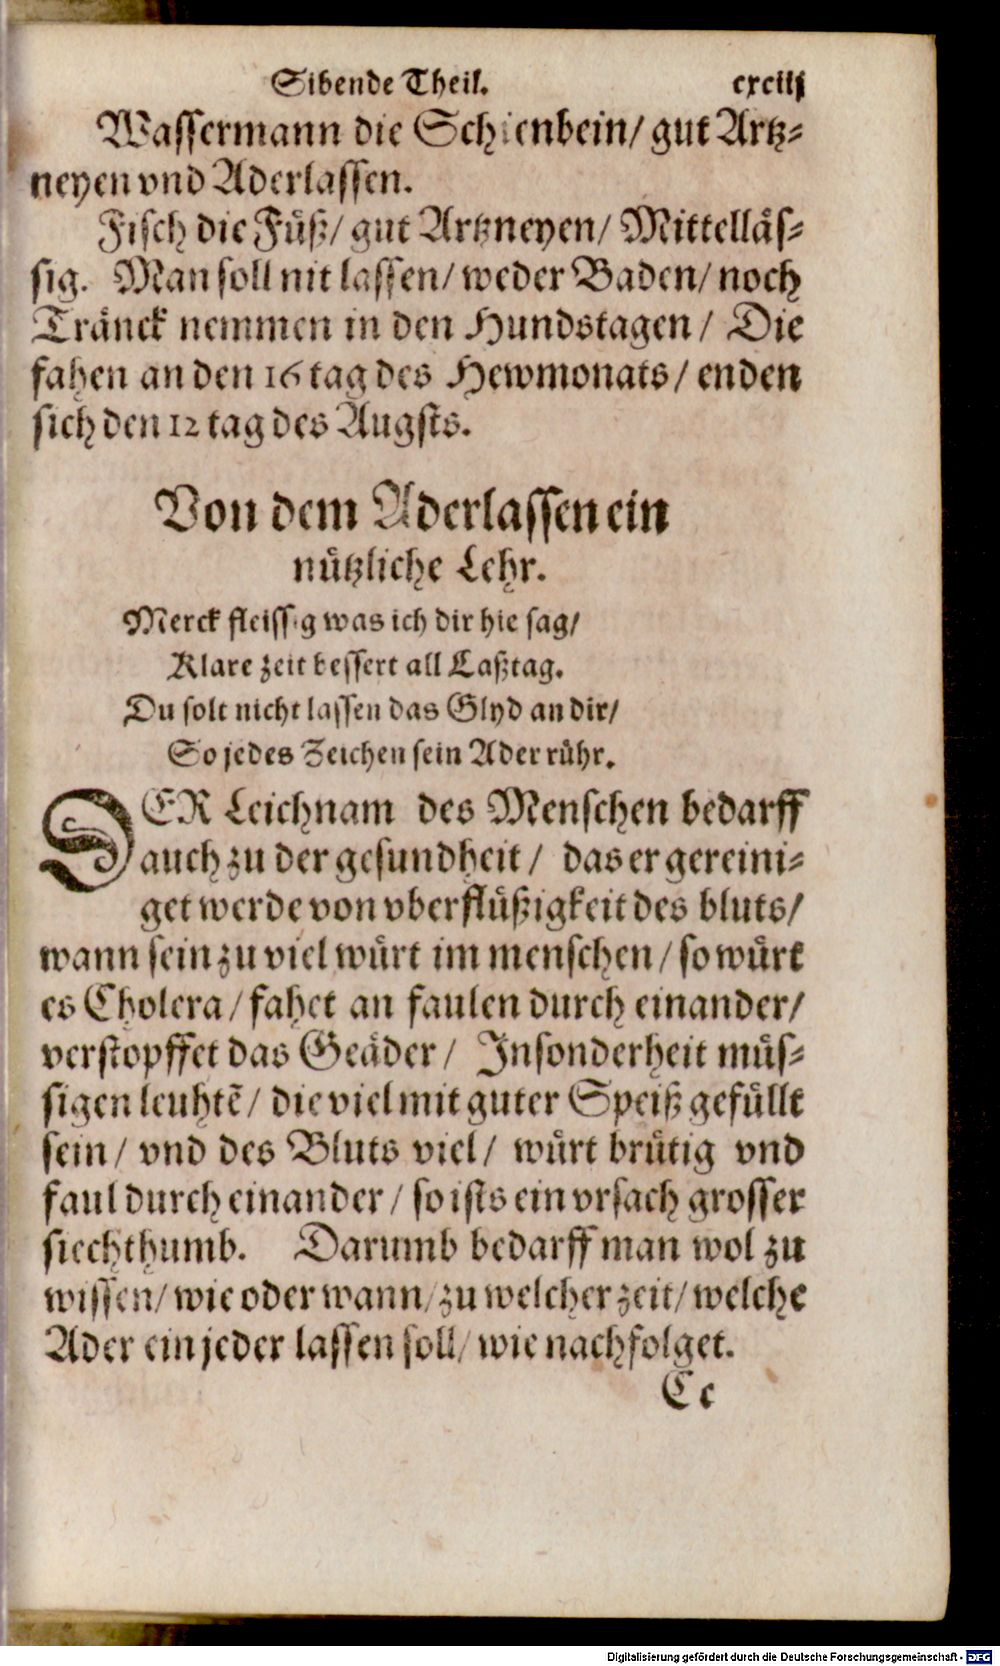 Sibende Theil. cxciij
Wassermann die Schienbein/ gut Artz-
neyen vnd Aderlassen.
Fisch die Füß/ gut Artzneyen/ Mittelläs-
sig. Man soll nit lassen/ weder Baden/ noch
Tränck nemmen in den Hundstagen/ Die
fahen an den 16 tag des Hewmonats/ enden
sich den 12 tag des Augsts.
Von dem Aderlassen ein
nützliche Lehr.
Merck fleissig was ich dir hie sag/
Klare zeit bessert all Laßtag.
Du solt nicht lassen das Glyd an dir/
So jedes Zeichen sein Ader rühr.
DER Leichnam des Menschen bedarff
auch zu der gesundheit/ das er gereini-
get werde von vberflüßigkeit des bluts/
wann sein zu viel würt im menschen/ so würt
es Cholera/ fahet an faulen durch einander/
verstopffet das Geäder/ Insonderheit müs-
sigen leuhtē/ die viel mit guter Speiß gefüllt
sein/ vnd des Bluts viel/ würt brütig vnd
faul durch einander/ so ists ein vrsach grosser
siechthumb. Darumb bedarff man wol zu
wissen/ wie oder wann/ zu welcher zeit/ welche
Ader ein jeder lassen soll/ wie nachfolget.
Cc
Digitalisierung gefördert durch die Deutsche Forschungsgemeinschaft - DFG